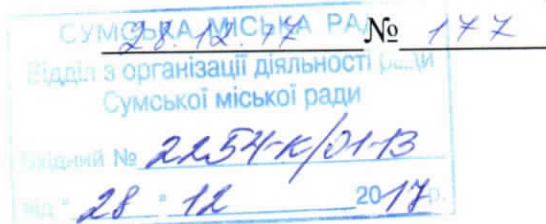 СУМСЬКА МІСЬКА РАДА
28.12.17 № 177
Відділ з організації діяльності ради
Сумської міської ради
Вхідний № 2254-К/01-13
від " 28 " 12 2017 р.